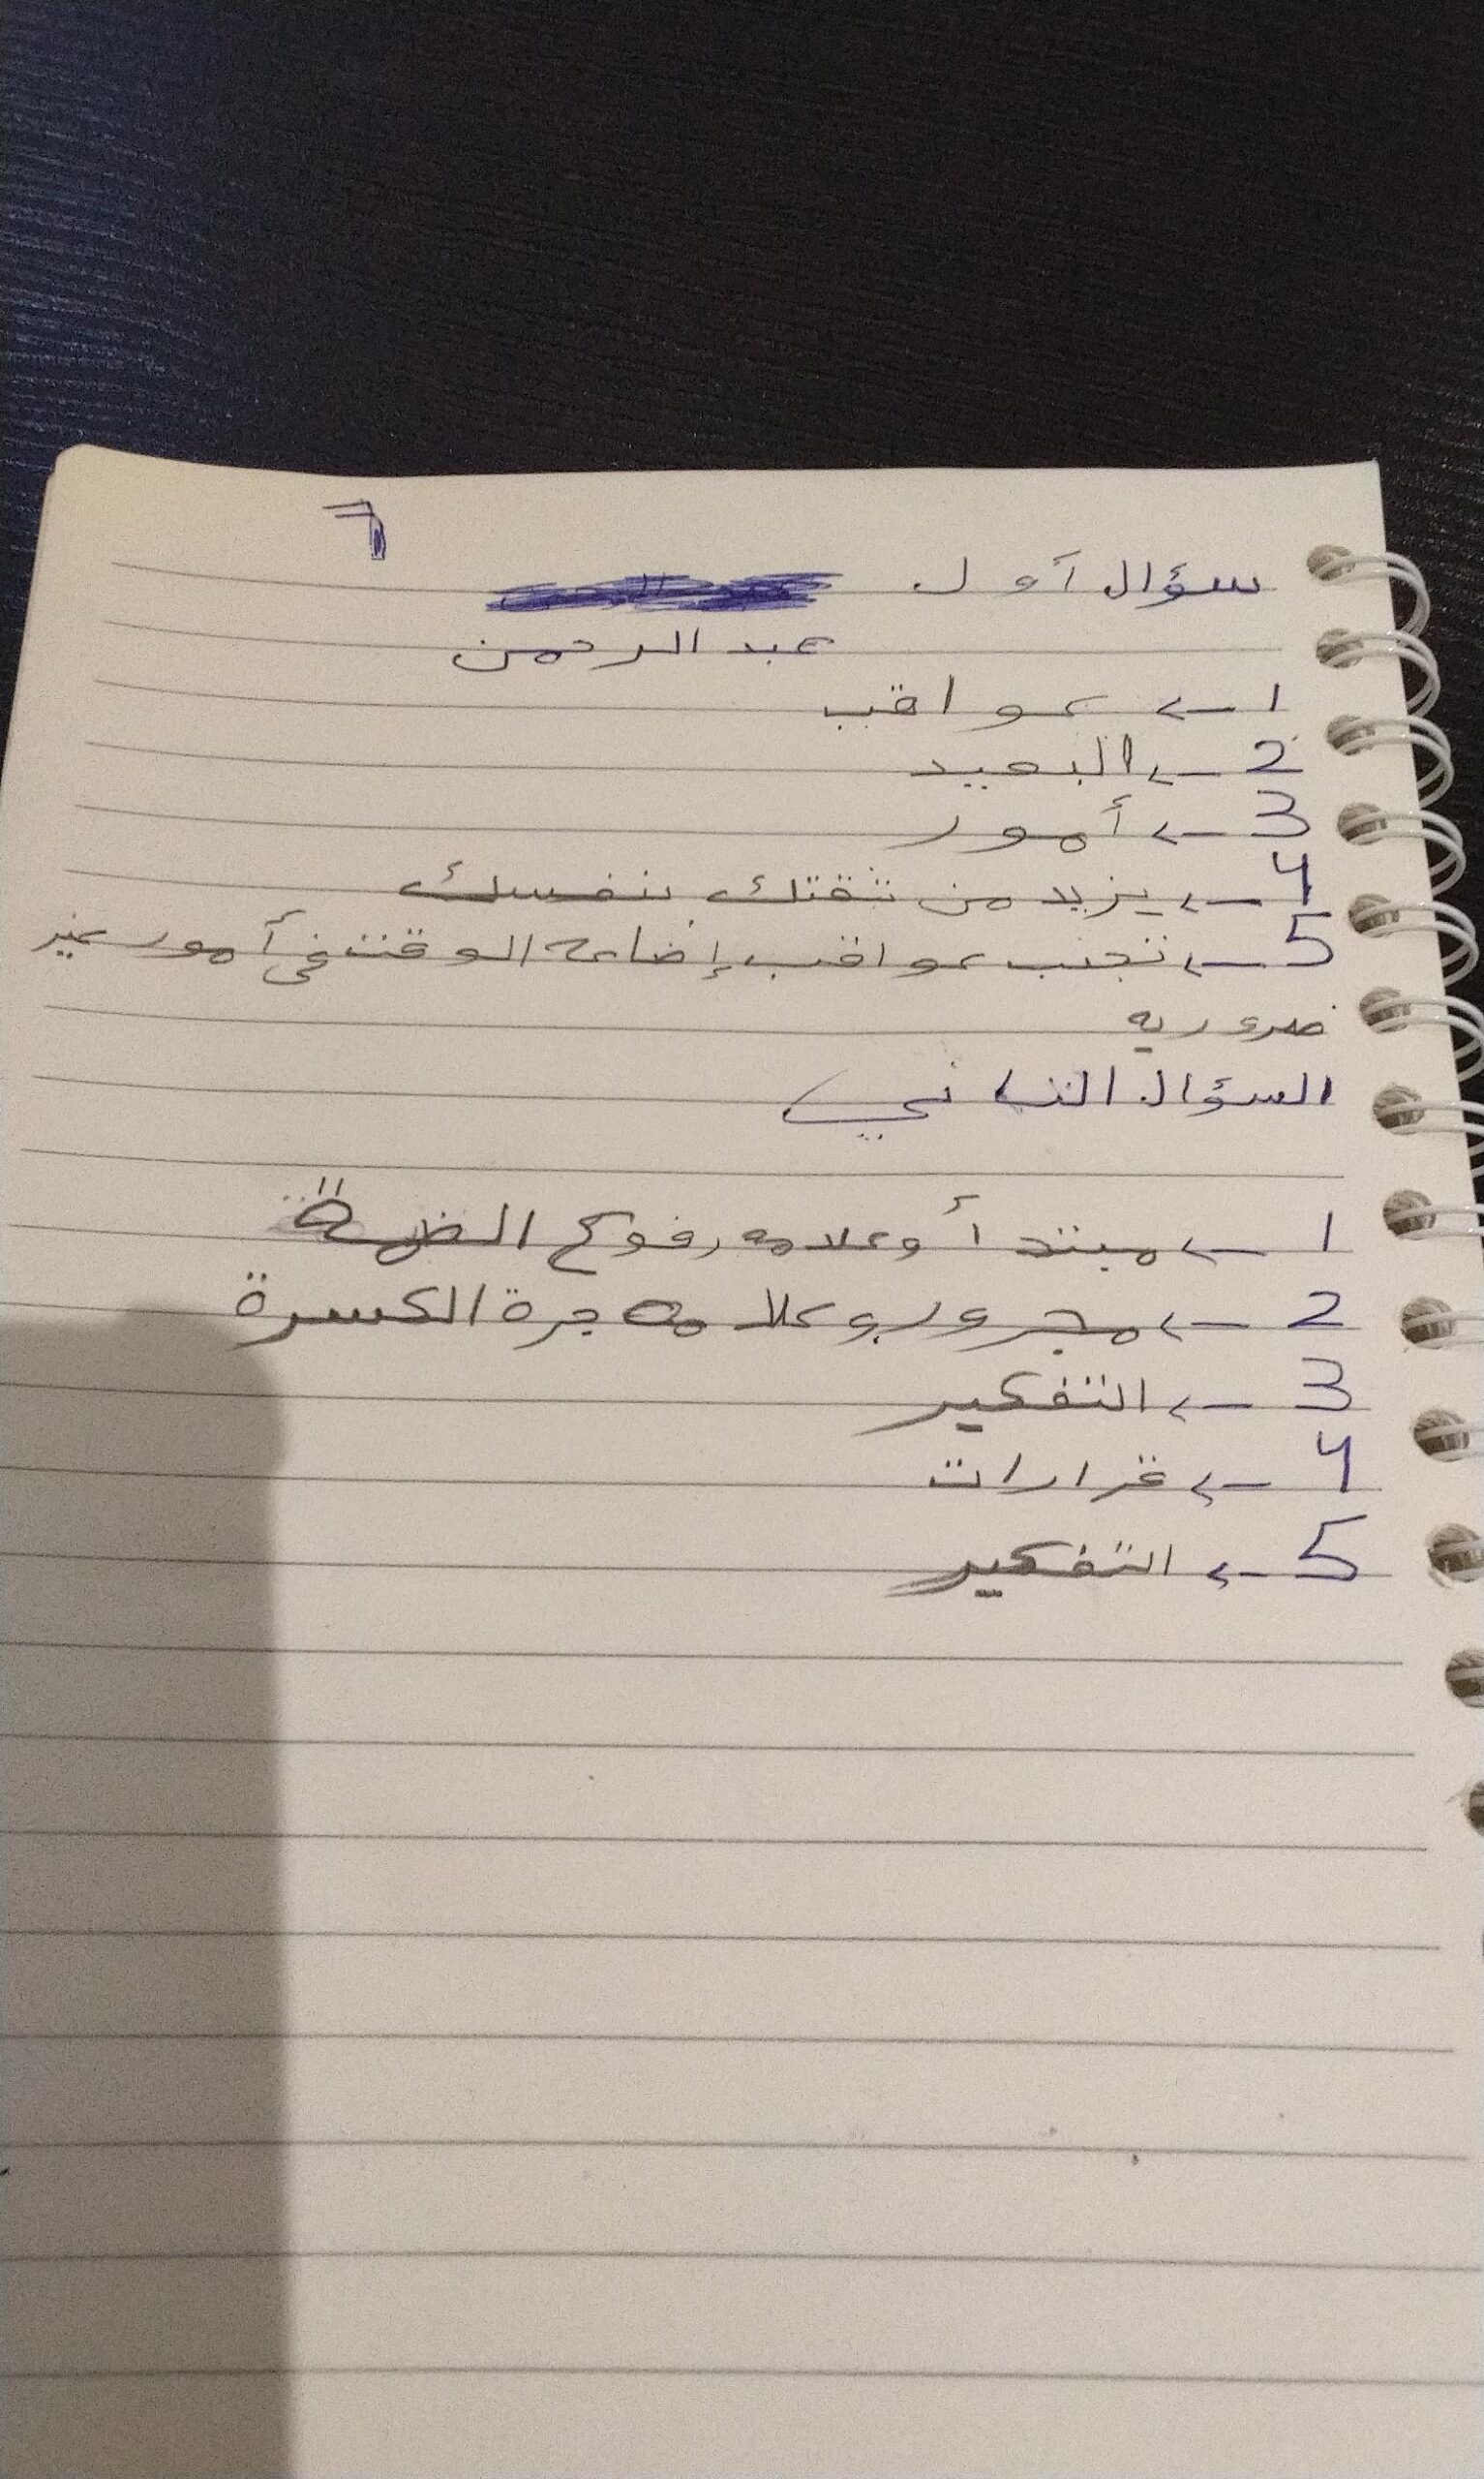 سؤال أول
عبد الرحمن
1 → عواقب
2 → البعيد
3 → أمور
4 → يزيد من ثقتك بنفسك
5 → تجنب عواقب إضاعة الوقت في أمور غير
ضروريه
السؤال الثاني
1 → مبتدأ وعلامه رفوع الضمة
2 → مجرور وعلامه جرة الكسرة
3 → التفكير
4 → قرارات
5 → التفكير